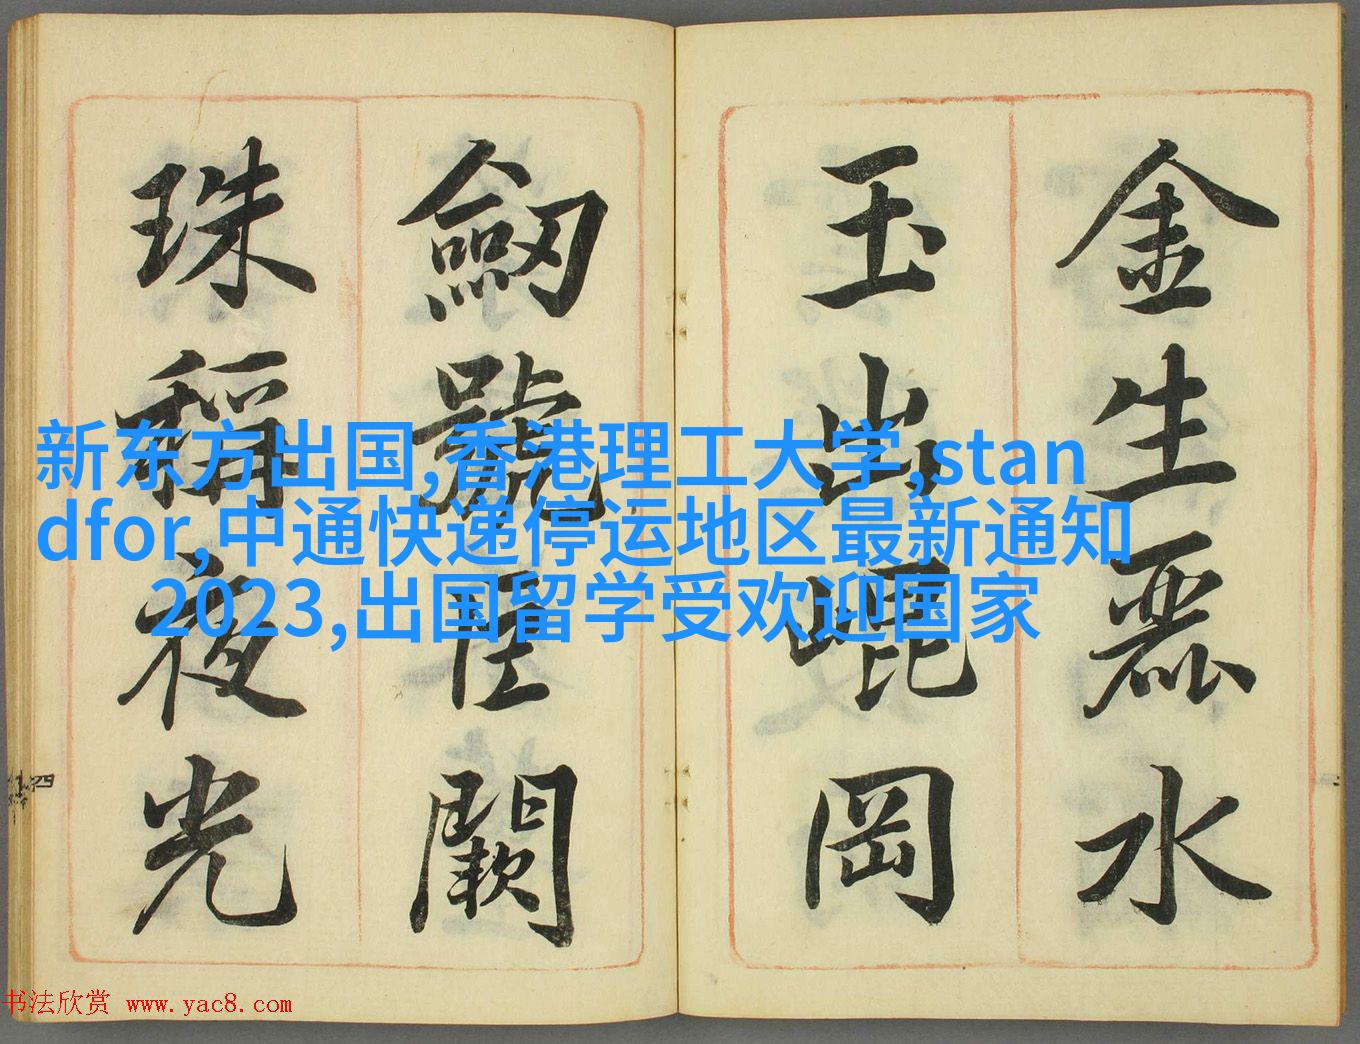 金生麗水
玉出崐岡
劔號巨闕
珠稱夜光
新东方出国,香港理工大学,stan
dfor,中通快递停运地区最新通知
2023,出国留学受欢迎国家
四
书法欣赏 www.yac8.com